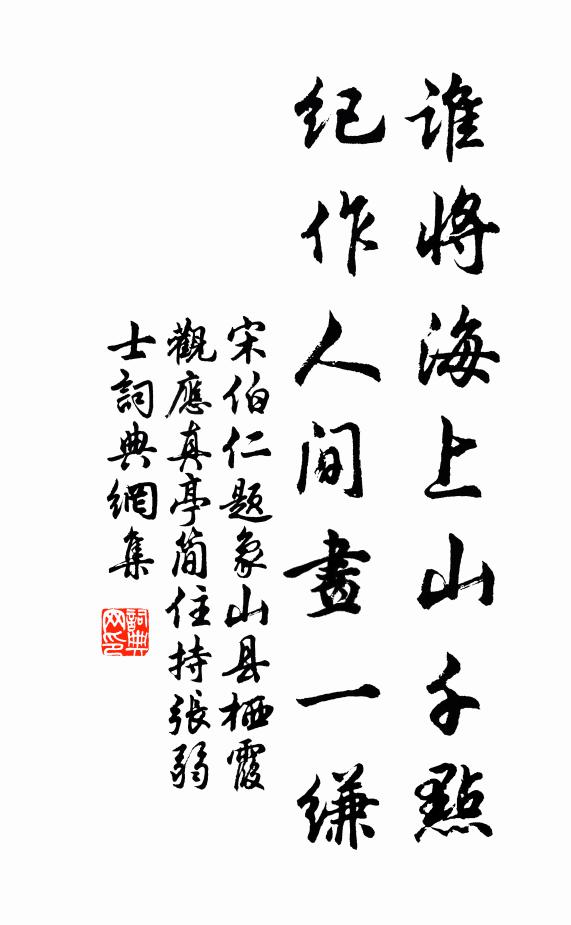 谁將海上山千點
纪作人间畫一縑
宋伯仁题象山县栖霞
觀應真亭簡住持張弱
士詞典網集
詞典網印